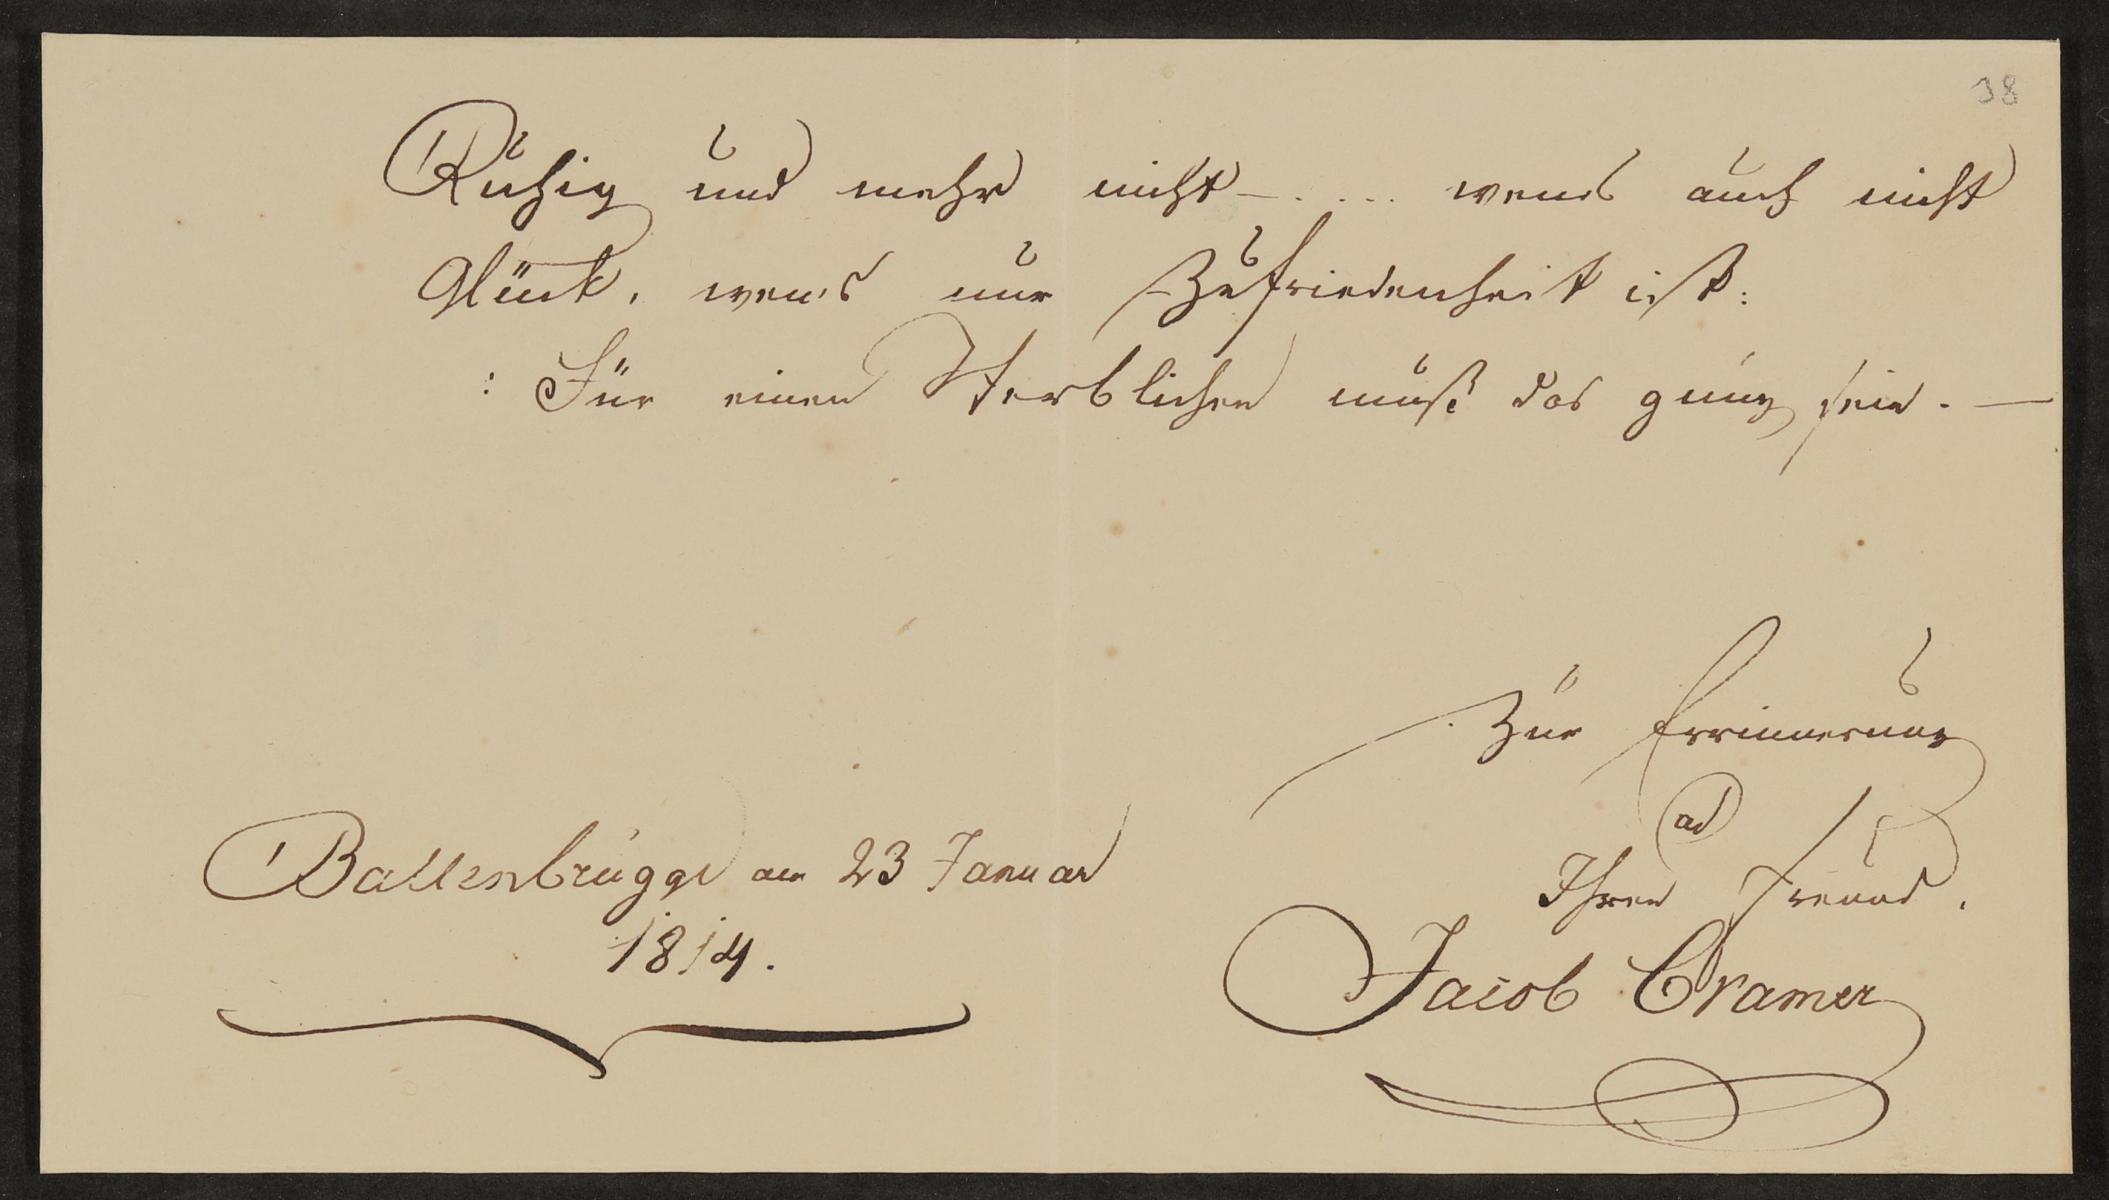 38
Ruhig und mehr nicht — . ... wens auch nicht
Glück, wen's nur Zufriedenheit ist:
: Für einen Sterblichen muß das gnug sein. —
Zur Errinnerung
ad
Ihren Freund.
Jacob Cramer
Ballenbrügge am 23 Januar
1814.